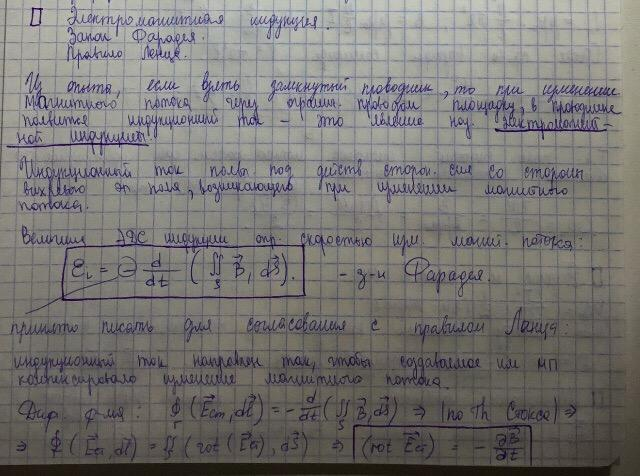 Электромагнитная индукция.
Закон Фарадея.
Правило Ленца.
Из опыта, если взять замкнутый проводник, то при изменении
магнитного потока через огранич. проводом площадку, в проводнике
появится индукционный ток – это явление наз. электромагнит-
ной индукцией.
Индукционный ток появл. под действ. сторон. сил со стороны
вихревого эл поля, возникающего при изменении магнитного
потока.
Величина ЭДС индукции опр. скоростью изм. магнит. потока:
Ɛi = ⊖ d/dt (∬S B⃗, dS⃗). – з-н Фарадея.
принято писать для согласования с правилом Ленца:
индукционный ток направлен так, чтобы создаваемое им МП
компенсировало изменение магнитного потока.
Диф. ф-ма: ∮Γ (E⃗ст, dl⃗) = – d/dt (∬S B⃗, dS⃗) ⇒ |по Th Стокса| ⇒
⇒ ∮Γ (E⃗ст, dl⃗) = ∬S (rot (E⃗ст), dS⃗) ⇒ (rot E⃗ст) = – ∂B⃗/∂t